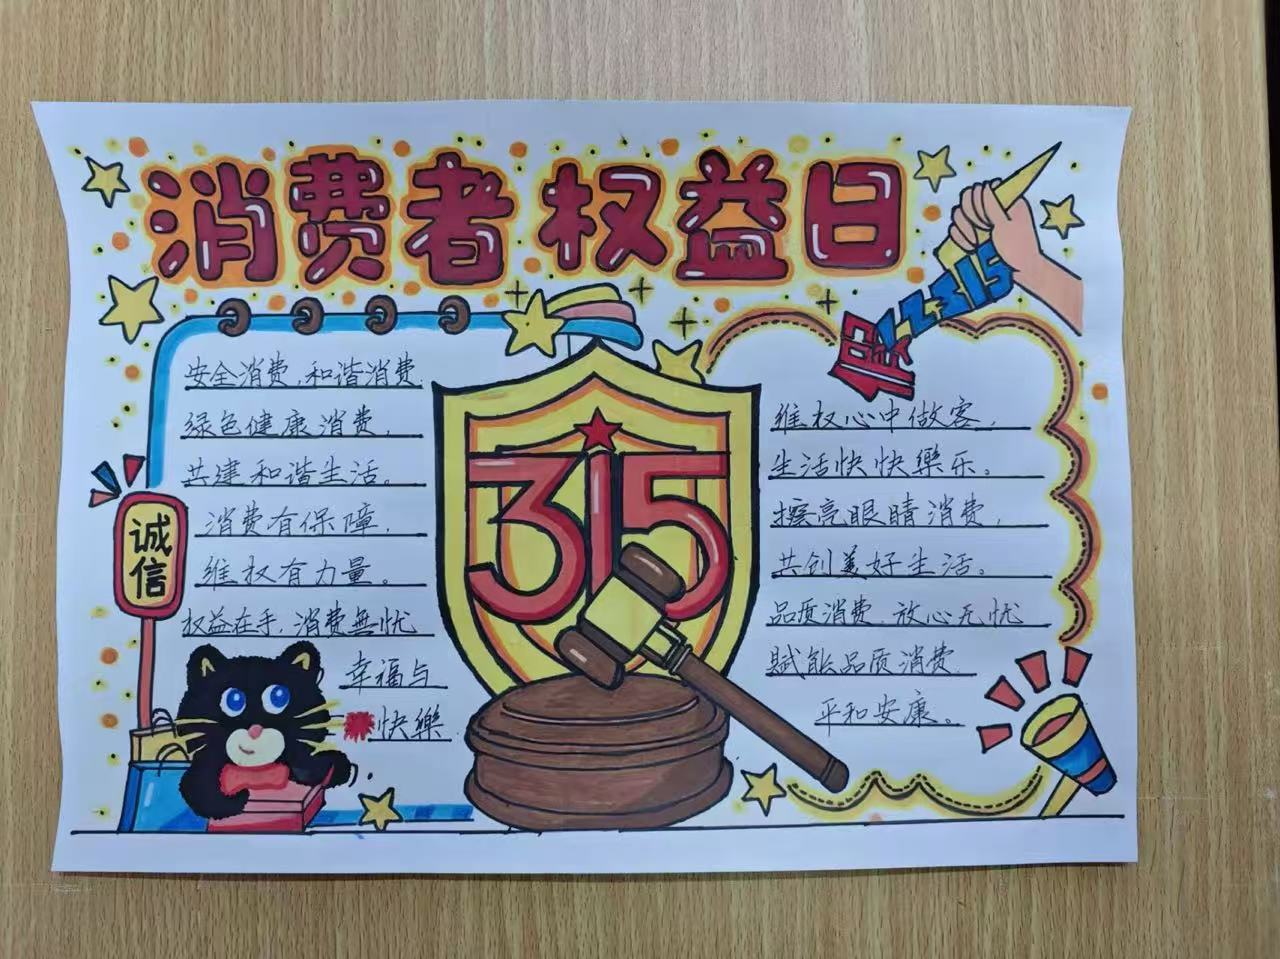 消费者权益日
12315
假
安全消费,和谐消费
绿色健康消费,
共建和谐生活。
消费有保障,
维权有力量。
权益在手,消费無忧
幸福与
快樂
诚信
315
维权心中做客,
生活快快樂乐。
擦亮眼睛消费,
共创美好生活。
品质消费,放心无忧
赋能品质消费
平和安康。